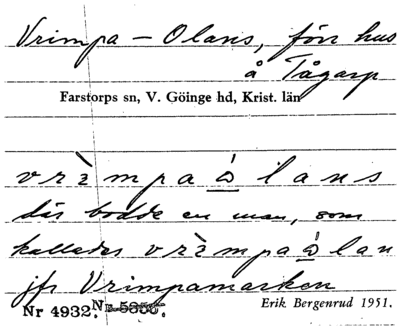 Vrimpa - Olans, förr hus
å Tågarp
Farstorps sn, V. Göinge hd, Krist. län
vrìmpaώ̲lans
där bodde en man, som
kallades vrìmpaώ̲lan
jfr Vrimpamarken
Nr 4932. Nr 5355. Erik Bergenrud 1951.